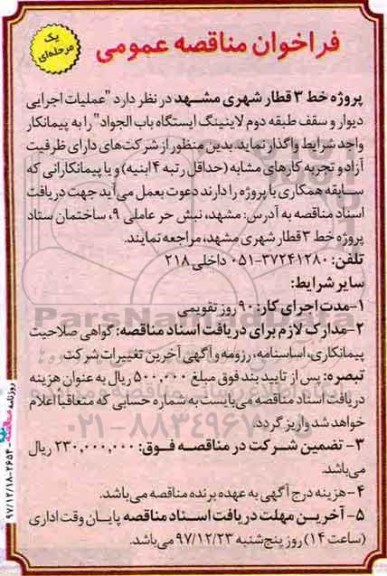 یک
مرحله‌ای
فراخوان مناقصه عمومی
پروژه خط ۳ قطار شهری مشهد در نظر دارد "عملیات اجرایی
دیوار و سقف طبقه دوم لاینینگ ایستگاه باب الجواد" را به پیمانکار
واجد شرایط واگذار نماید. بدین منظور از شرکت‌های دارای ظرفیت
آزاد و تجربه کارهای مشابه (حداقل رتبه ۴ ابنیه) و یا پیمانکارانی که
سابقه همکاری با پروژه را دارند دعوت بعمل می‌آید جهت دریافت
اسناد مناقصه به آدرس: مشهد، نبش حر عاملی ۹، ساختمان ستاد
پروژه خط ۳ قطار شهری مشهد، مراجعه نمایند.
تلفن: ۳۷۲۴۱۲۸۰-۰۵۱ داخلی ۲۱۸
سایر شرایط:
۱-مدت اجرای کار: ۹۰ روز تقویمی
۲-مدارک لازم برای دریافت اسناد مناقصه: گواهی صلاحیت
پیمانکاری، اساسنامه، رزومه و آگهی آخرین تغییرات شرکت
تبصره: پس از تایید بند فوق مبلغ ۵۰۰,۰۰۰ ریال به عنوان هزینه
دریافت اسناد مناقصه می‌بایست به شماره حسابی که متعاقبا اعلام
خواهد شد واریز گردد.
۳- تضمین شرکت در مناقصه فوق: ۲۳۰,۰۰۰,۰۰۰ ریال
می‌باشد.
۴-هزینه درج آگهی به عهده برنده مناقصه می‌باشد.
۵-آخرین مهلت دریافت اسناد مناقصه پایان وقت اداری
(ساعت ۱۴) روز پنج‌شنبه ۹۷/۱۲/۲۳ می‌باشد.
روزنامه مناقصه ۲۶۵۴-۹۷/۱۲/۱۸
ParsNamad
۰۲۱-۸۸۳۴۹۶۷۰